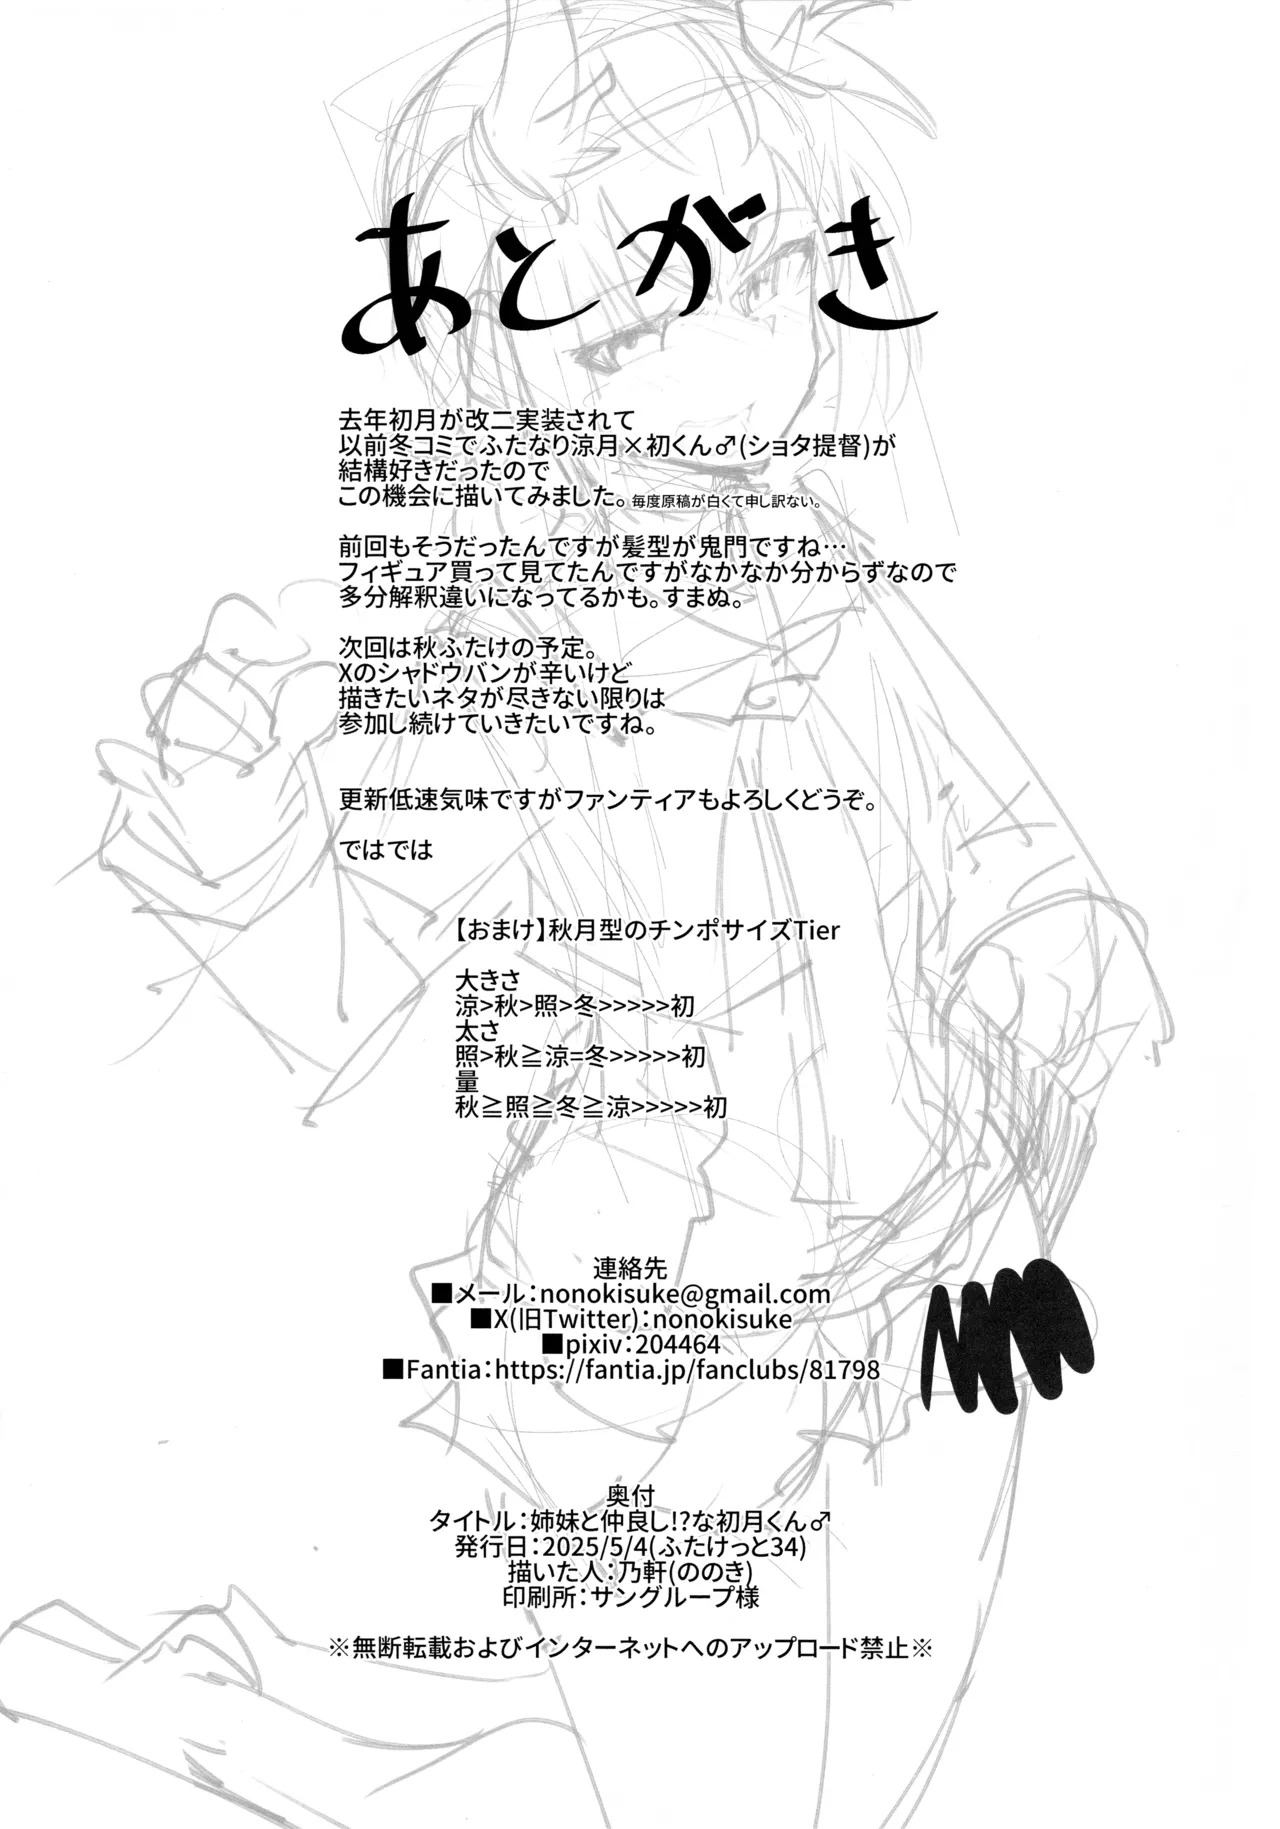 あとがき
去年初月が改二実装されて
以前冬コミでふたなり涼月×初くん♂(ショタ提督)が
結構好きだったので
この機会に描いてみました。毎度原稿が白くて申し訳ない。
前回もそうだったんですが髪型が鬼門ですね…
フィギュア買って見てたんですがなかなか分からずなので
多分解釈違いになってるかも。すまぬ。
次回は秋ふたけの予定。
Xのシャドウバンが辛いけど
描きたいネタが尽きない限りは
参加し続けていきたいですね。
更新低速気味ですがファンティアもよろしくどうぞ。
ではでは
【おまけ】秋月型のチンポサイズTier
大きさ
涼>秋>照>冬>>>>>初
太さ
照>秋≧涼=冬>>>>>初
量
秋≧照≧冬≧涼>>>>>初
連絡先
■メール：nonokisuke@gmail.com
■X(旧Twitter)：nonokisuke
■pixiv：204464
■Fantia：https://fantia.jp/fanclubs/81798
奥付
タイトル：姉妹と仲良し!?な初月くん♂
発行日：2025/5/4(ふたけっと34)
描いた人：乃軒(ののき)
印刷所：サングループ様
※無断転載およびインターネットへのアップロード禁止※